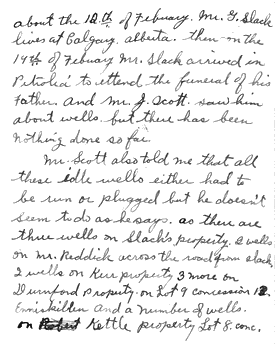 about the 12.th of Febuary. Mr. G. Slack
lives at Calgary. Alberta. then on the
19th of Febuary Mr. Slack arrived in
Petrolia to ettend the funeral of his
Father. and Mr. J. Scott. saw him
about wells. but there has been
nothing done so far.
Mr. Scott also told me that all
these idle wells either had to
be run or plugged but he doesn't
seem to do as he says. as there are
three wells on Slack's property. 2 wells
on Mr. Reddick across the road from Slack
2 wells on Kerr property 3 more on
Durnford Property. on Lot 9 concession 12.
Enniskillen and a number of wells.
on Kettle property Lot 8. conc.